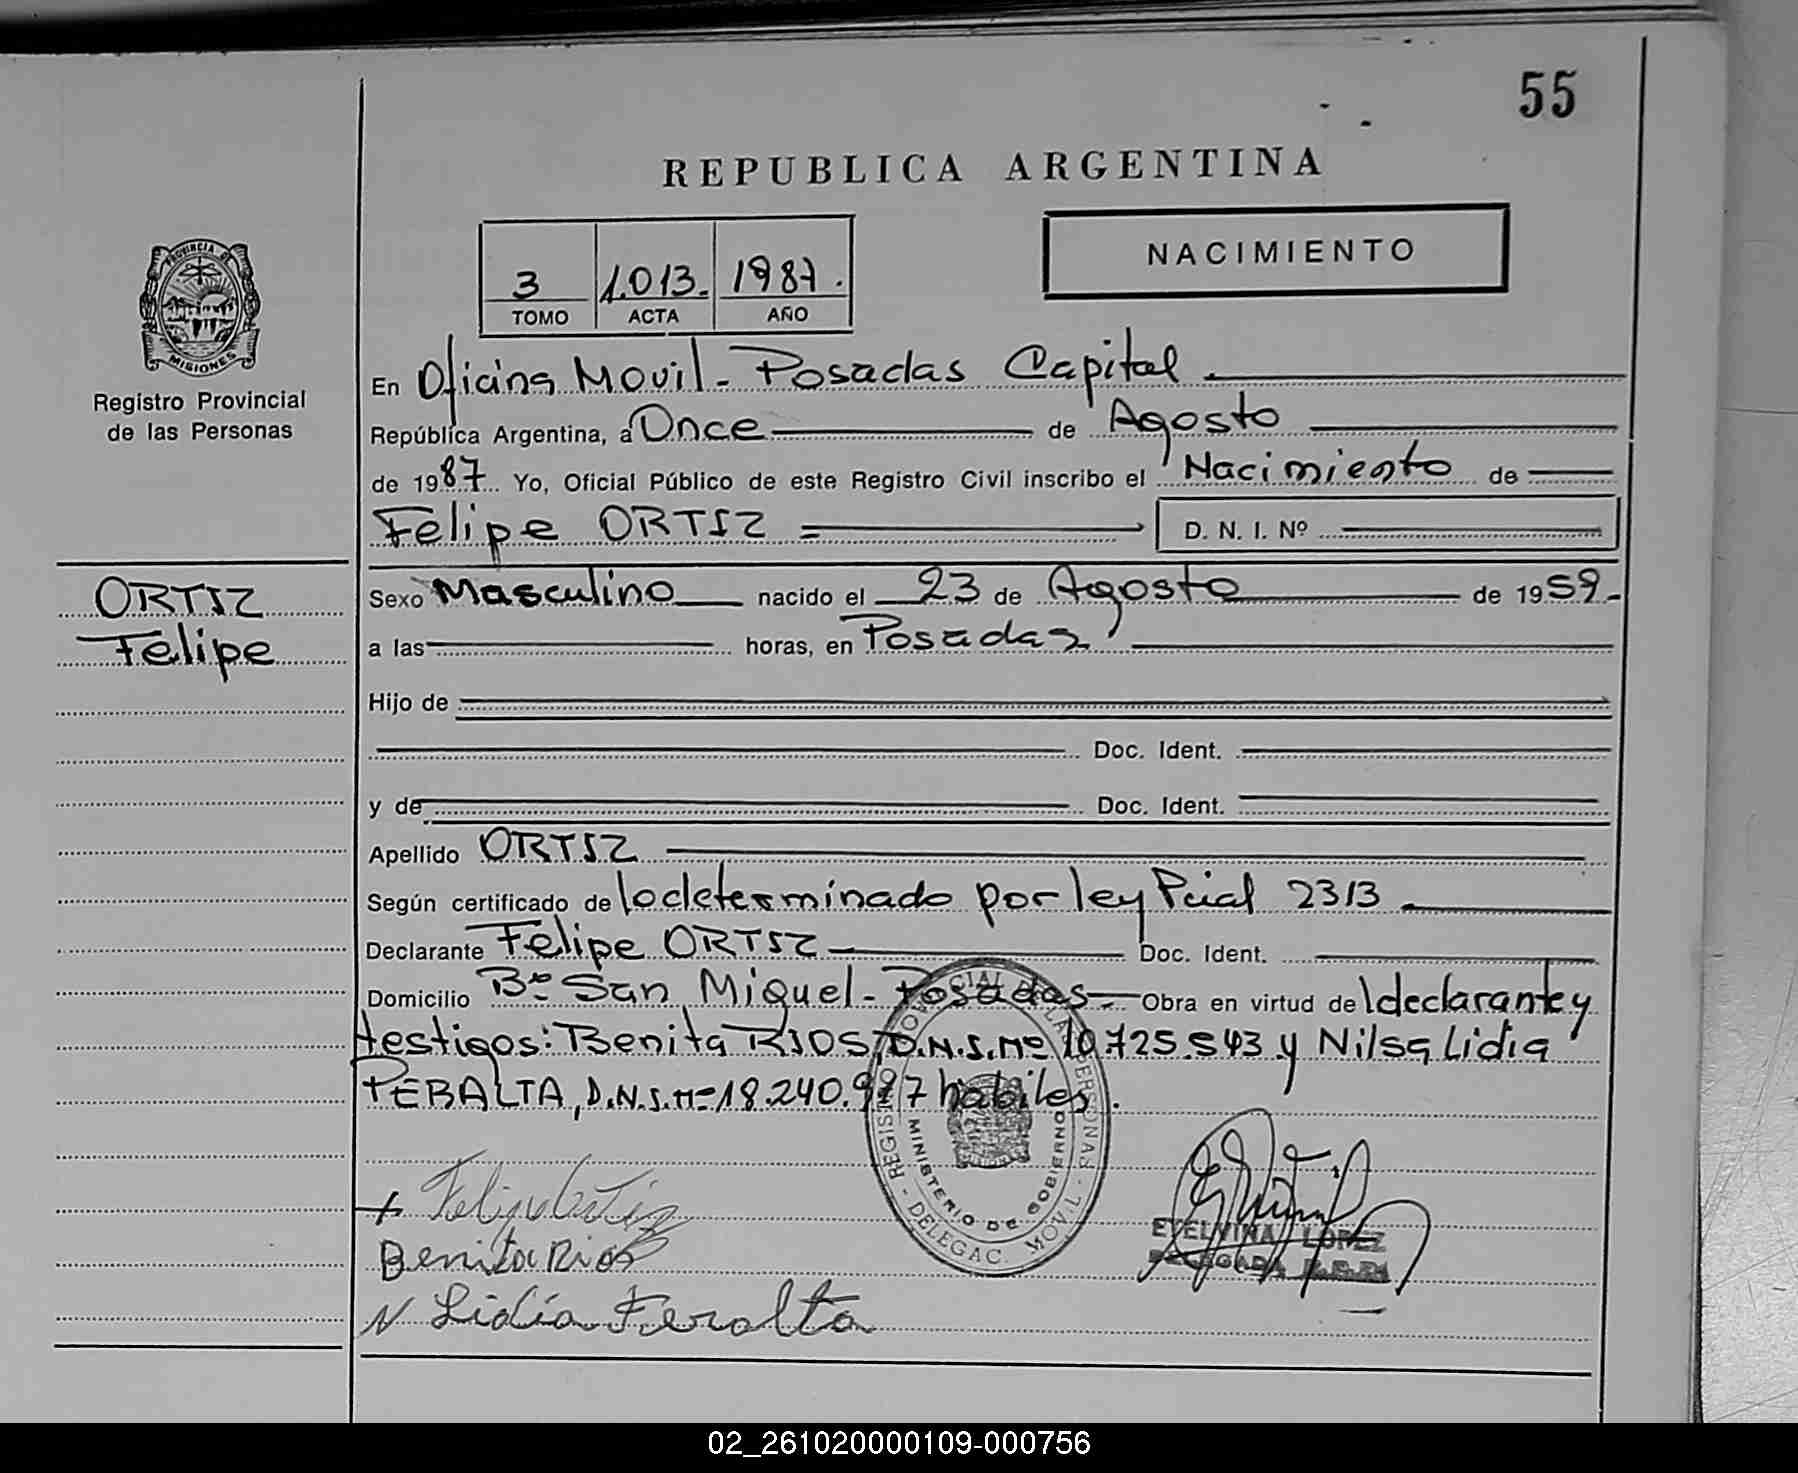 55
REPUBLICA ARGENTINA
3 1.013. 1987.
TOMO ACTA AÑO
NACIMIENTO
PROVINCIA DE MISIONES
Registro Provincial
de las Personas
En Oficina Movil - Posadas Capital
República Argentina, a Once de Agosto
de 1987 Yo, Oficial Público de este Registro Civil inscribo el Nacimiento de
Felipe ORTIZ D. N. I. Nº
ORTIZ
Felipe
Sexo Masculino nacido el 23 de Agosto de 1959.
a las horas, en Posadas
Hijo de
Doc. Ident.
y de Doc. Ident.
Apellido ORTIZ
Según certificado de lo determinado por ley Pcial 2313
Declarante Felipe ORTIZ Doc. Ident.
Domicilio Bº San Miguel - Posadas - Obra en virtud del declarante y
testigos: Benita RIOS, D.N.I. Nº 10.725.543 y Nilsa Lidia
PERALTA, D.N.I. Nº 18.240.977 habiles.
REGISTRO PROVINCIAL DE LAS PERSONAS - DELEGAC. MOVIL -
MINISTERIO DE GOBIERNO
+ Felipe Ortiz
Benita Rios
N Lidia Peralta
ETELVINA LOPEZ
DELEGADA R.P.P.
02_261020000109-000756